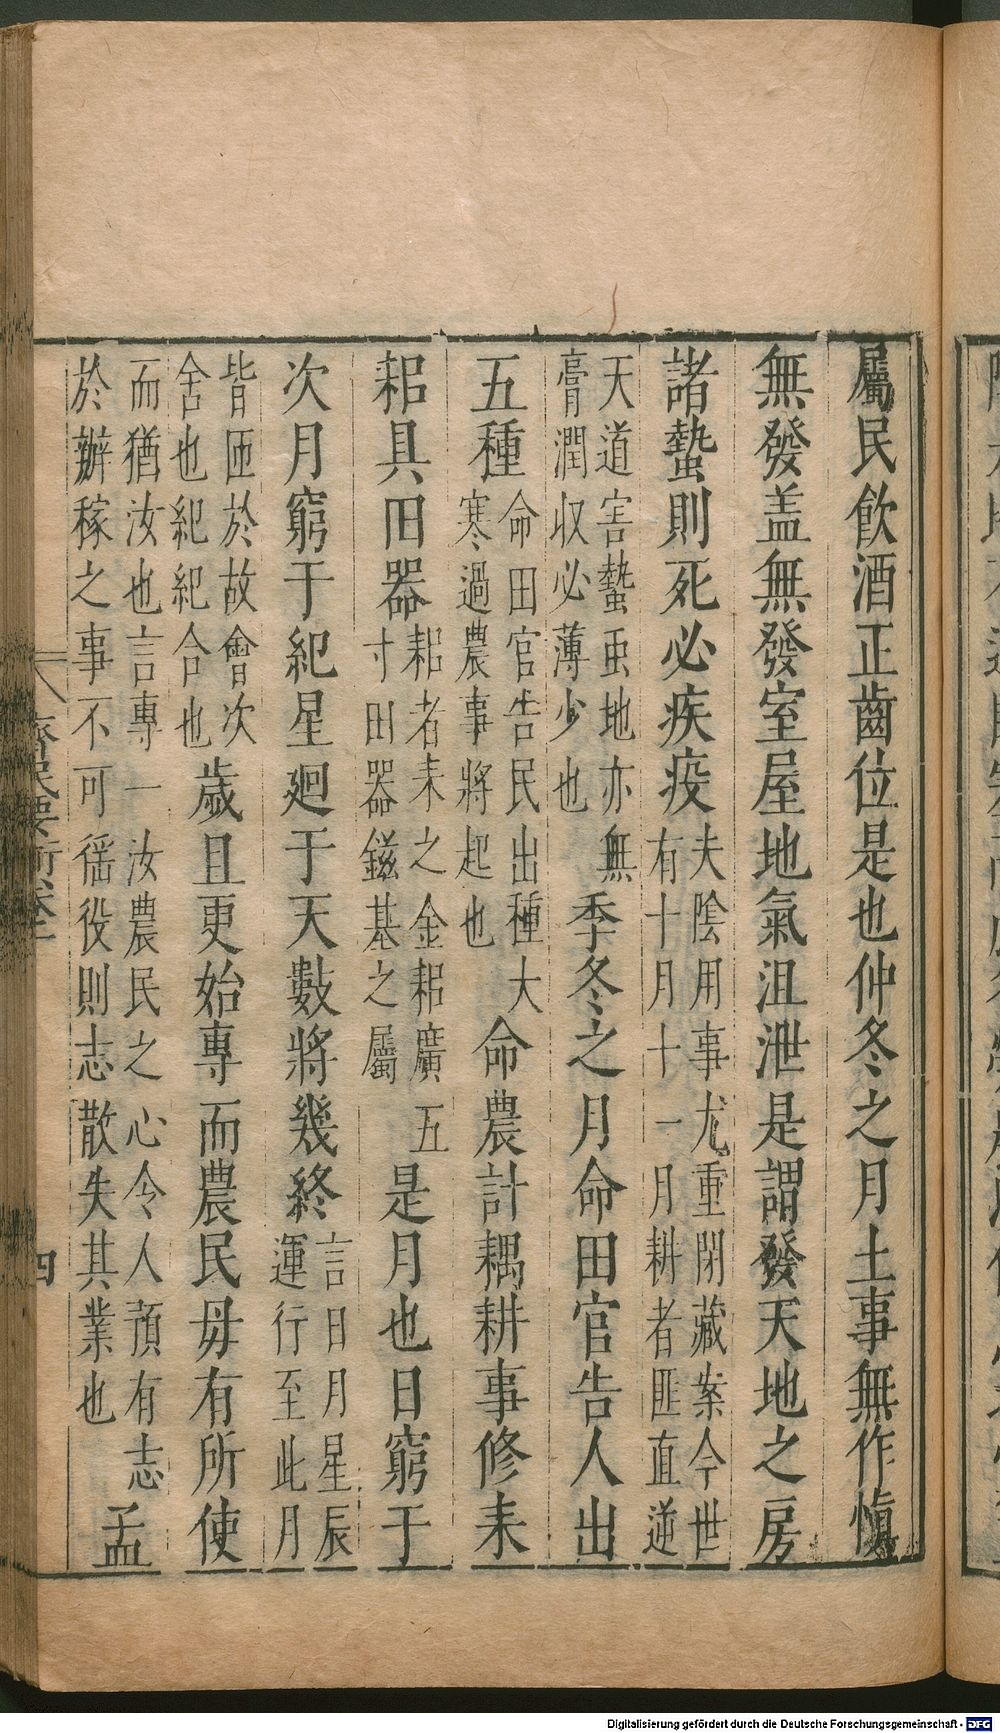 屬民飲酒正齒位是也仲冬之月土事無作慎
無發盖無發室屋地氣沮泄是謂發天地之房
諸蟄則死必疾疫夫陰用事尤重閉藏案今世有十月十一月耕者匪直逆
天道害蟄虫地亦無膏潤收必薄少也季冬之月命田官告人出
五種命田官告民出種大寒過農事將起也命農計耦耕事修耒
耜具田器耜者耒之金耜廣五寸田器鎡基之屬是月也日窮于
次月窮于紀星廻于天數將幾終言日月星辰運行至此月
皆匝於故會次舍也紀紀合也歲且更始專而農民毋有所使
而猶汝也言專一汝農民之心令人預有志於辦稼之事不可徭役則志散失其業也孟
齊民要術卷一
四
Digitalisierung gefördert durch die Deutsche Forschungsgemeinschaft - DFG